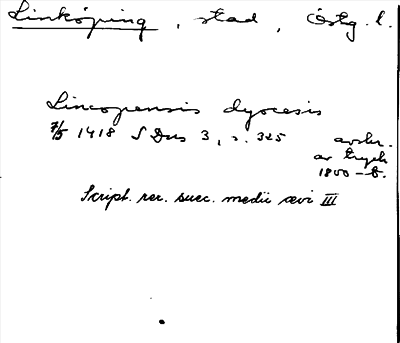 Linköping, stad, Östg. l.
Lincopensis dyocesis
7/5 1418 SDns 3, s. 325
avskr.
av tryck
1800-t.
Script. rer. suec. medii ævi III